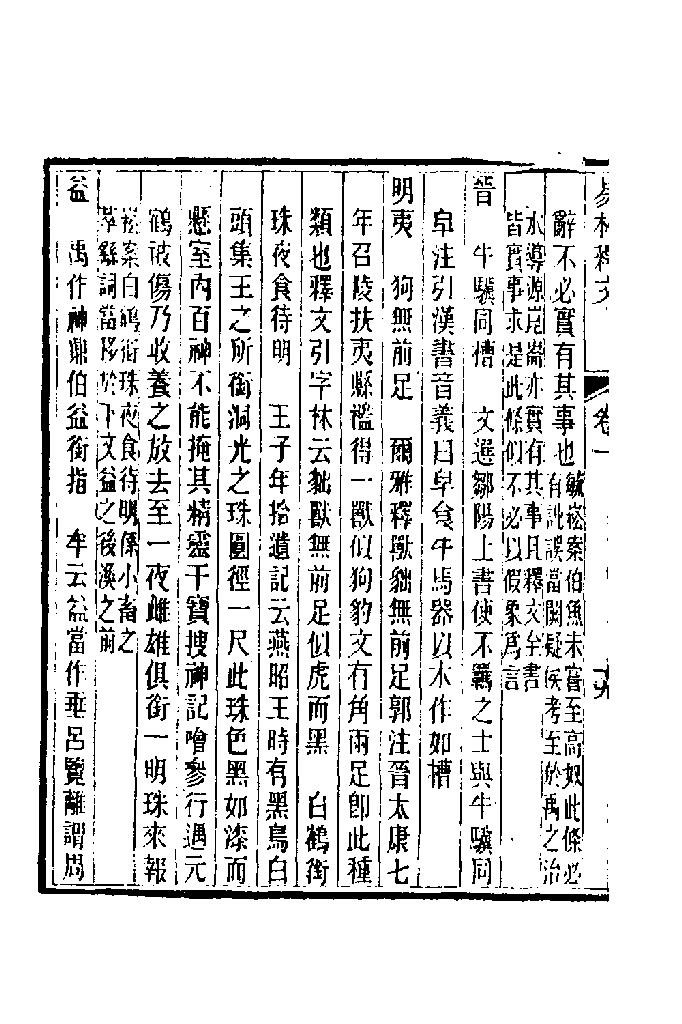 易林釋文
卷一
十九
辭不必實有其事也毓崧案伯魚未嘗至高奴此條必
有訛誤當闕疑俟考至於禹之治
水導源崑崙亦實有其事且釋文全書
皆實事求是此條似不必以假象爲言
晉　牛驥同槽　文選鄒陽上書使不羈之士與牛驥同
皁注引漢書音義曰皁食牛馬器以木作如槽
明夷　狗無前足　爾雅釋獸貀無前足郭注晉太康七
年召陵扶夷縣檻得一獸似狗豹文有角兩足卽此種
類也釋文引字林云貀獸無前足似虎而黑　白鶴銜
珠夜食待明　王子年拾遺記云燕昭王時有黑鳥白
頭集王之所銜洞光之珠圓徑一尺此珠色黑如漆而
懸室內百神不能掩其精靈干寶搜神記噲參行遇元
鶴被傷乃收養之放去至一夜雌雄俱銜一明珠來報
崧案白鶴銜珠夜食待明係小畜之
萃繇詞當移於下文益之後渙之前
益　禹作神鼎伯益銜指　牟云益當作垂呂覽離謂周